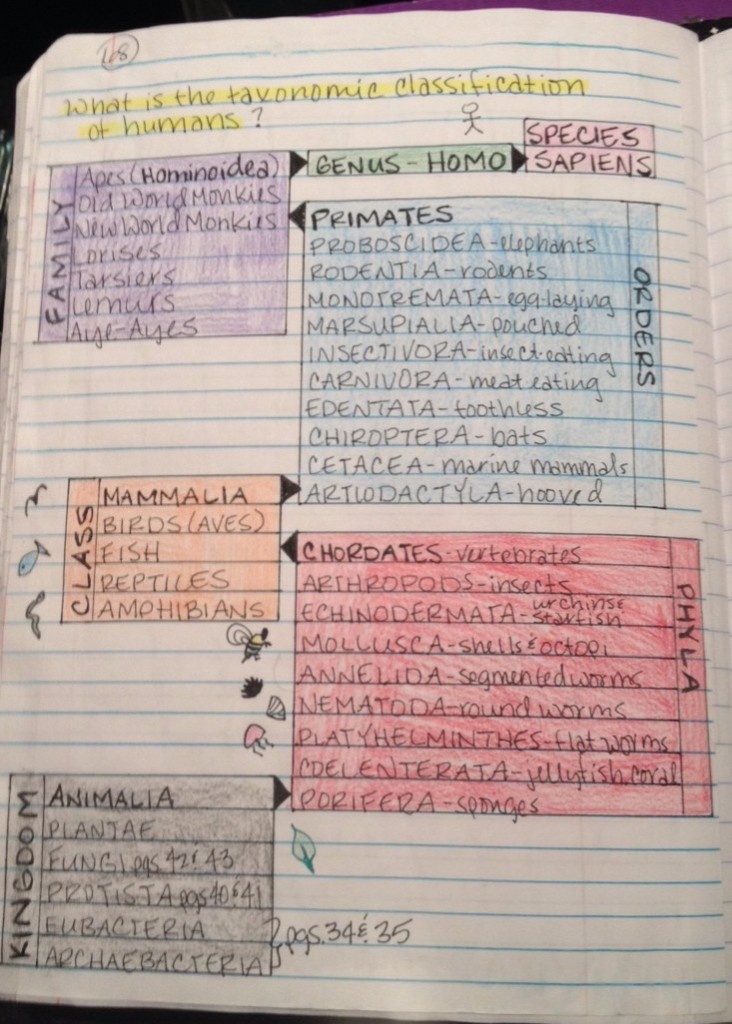 168
What is the taxonomic classification
of humans?
FAMILY
Apes (Hominoidea)
Old World Monkies
New World Monkies
Lorises
Tarsiers
Lemurs
Aye-Ayes
GENUS - HOMO
SPECIES
SAPIENS
ORDERS
PRIMATES
PROBOSCIDEA-elephants
RODENTIA-rodents
MONOTREMATA-egg-laying
MARSUPIALIA-pouched
INSECTIVORA-insect-eating
CARNIVORA-meat eating
EDENTATA-toothless
CHIROPTERA-bats
CETACEA-marine mammals
ARTIODACTYLA-hooved
CLASS
MAMMALIA
BIRDS (AVES)
FISH
REPTILES
AMPHIBIANS
PHYLA
CHORDATES-vertebrates
ARTHROPODS-insects
ECHINODERMATA-urchins & starfish
MOLLUSCA-shells & octopi
ANNELIDA-segmented worms
NEMATODA-round worms
PLATYHELMINTHES-flat worms
COELENTERATA-jellyfish, coral
PORIFERA-sponges
KINGDOM
ANIMALIA
PLANTAE
FUNGI pgs. 42 & 43
PROTISTA pgs 40 & 41
EUBACTERIA
ARCHAEBACTERIA
pgs. 34 & 35